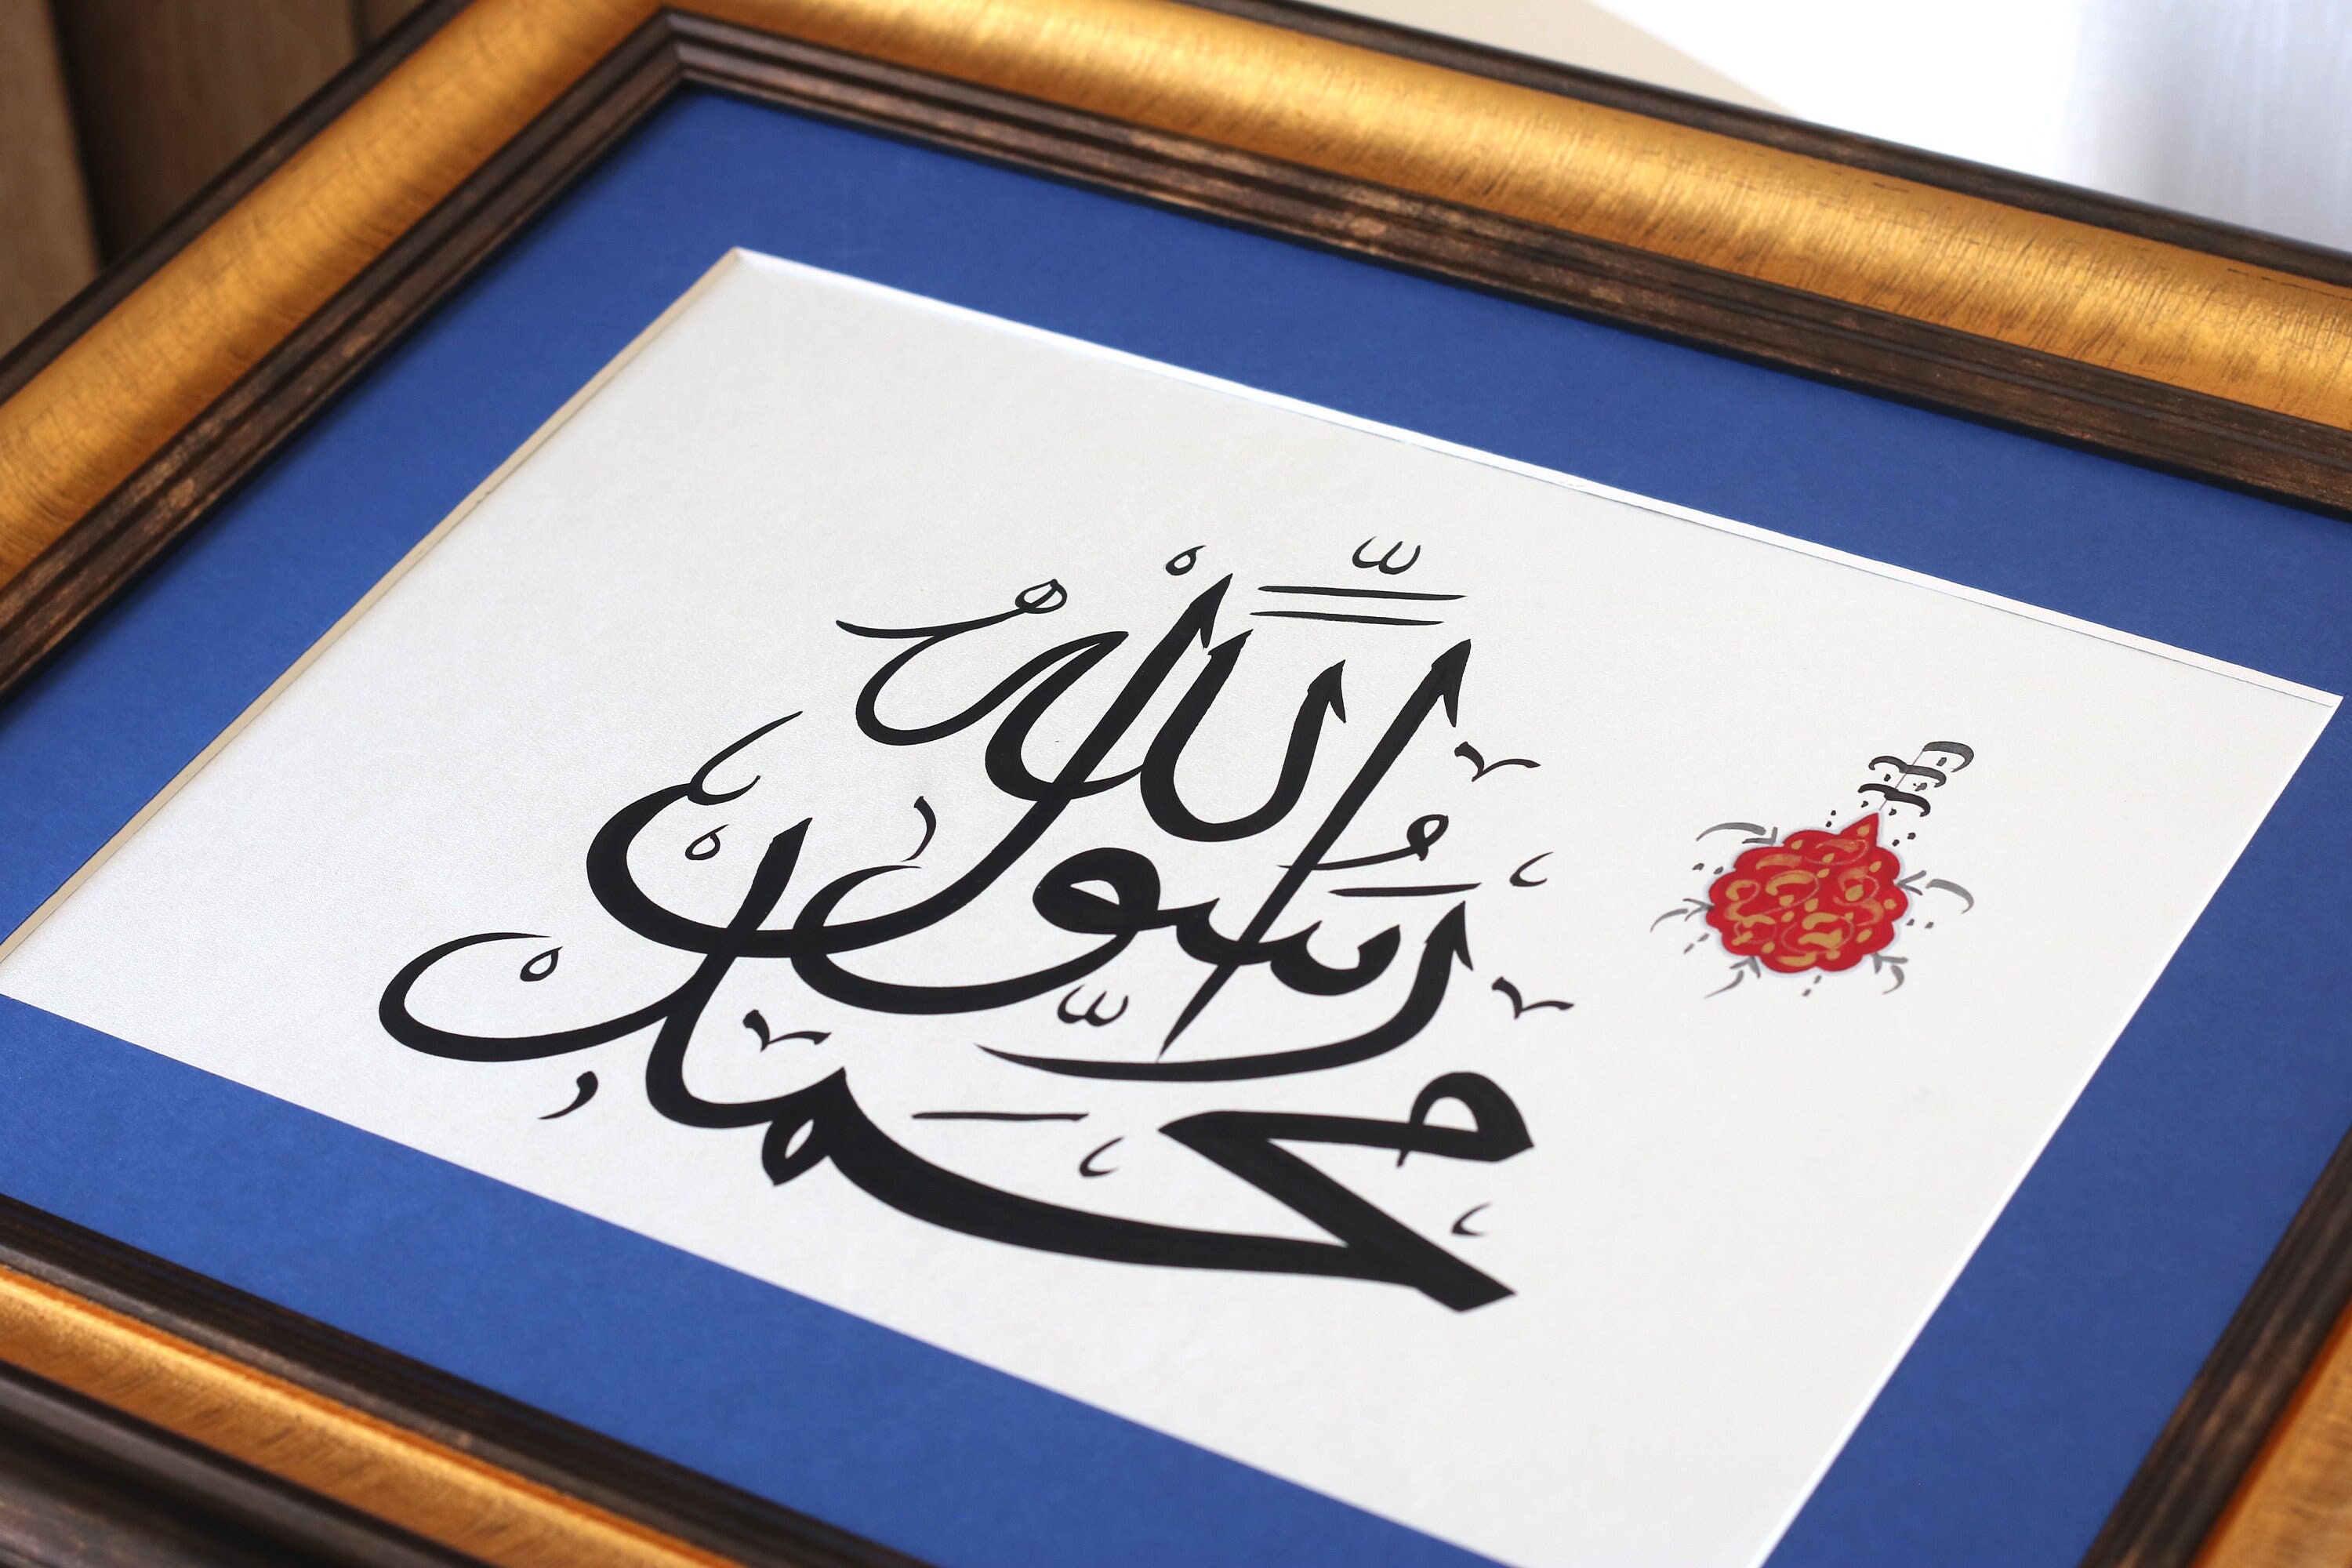 محمد
رسول
الله